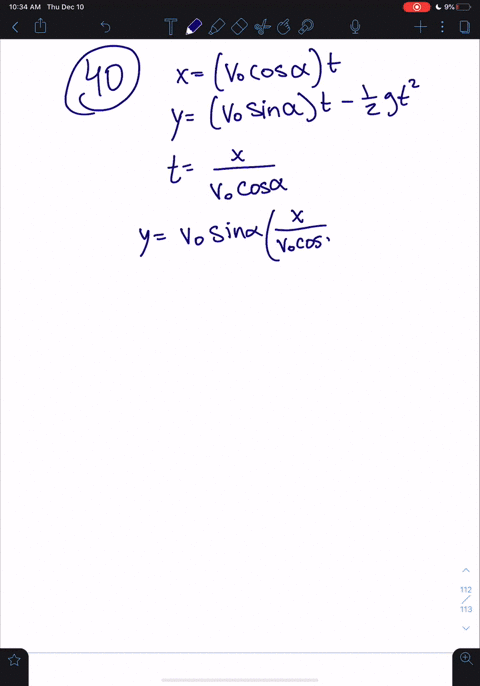 10:34 AM Thu Dec 10
9%
40
x = (v₀ cosα) t
y = (v₀ sinα) t - ½ gt²
t = x / v₀ cosα
y = v₀ sinα ( x / v₀ cos
112
/
113